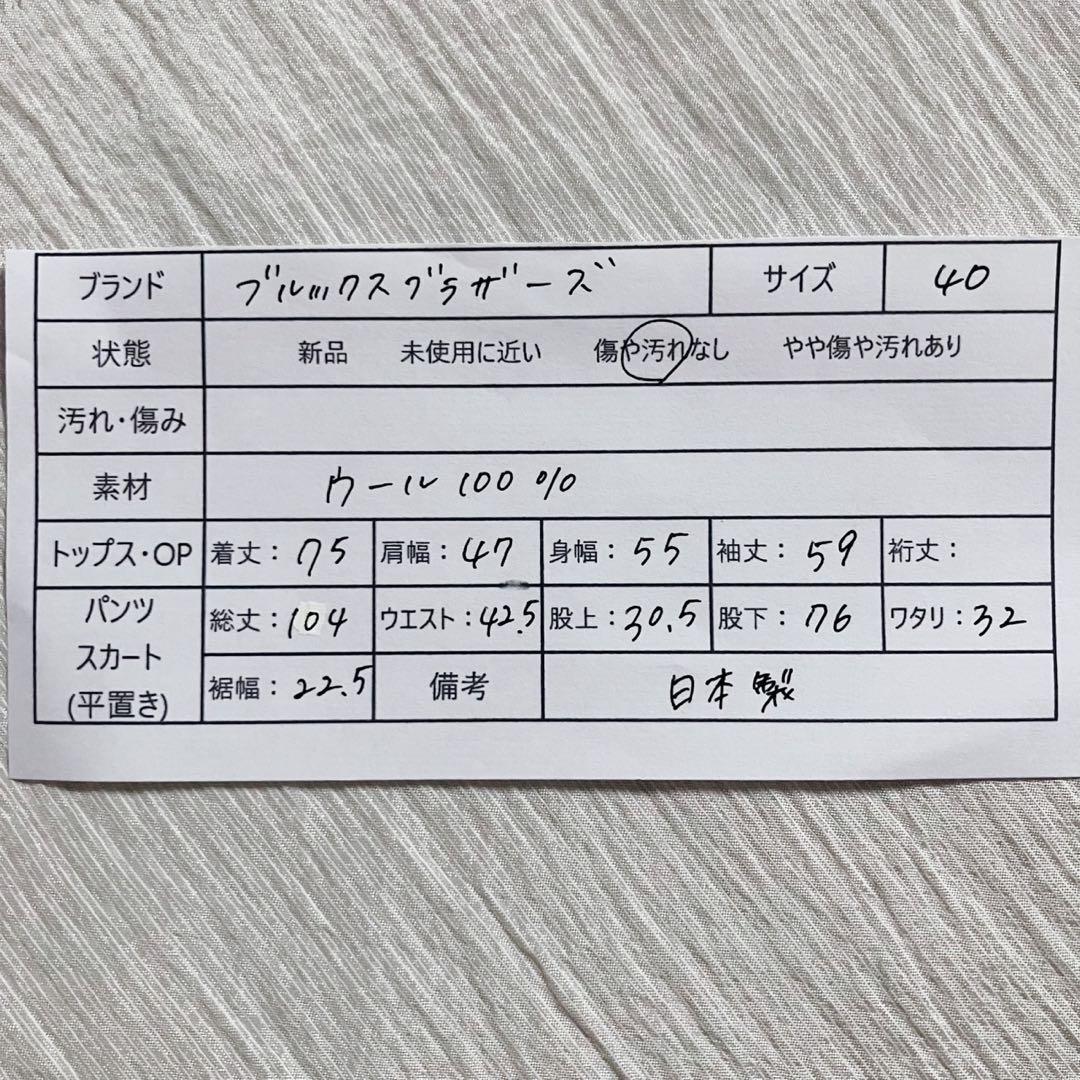 ブランド ブルックスブラザーズ サイズ 40
状態 新品 未使用に近い 傷や汚れなし やや傷や汚れあり
汚れ・傷み
素材 ウール100%
トップス・OP 着丈：75 肩幅：47 身幅：55 袖丈：59 裄丈：
パンツ スカート (平置き) 総丈：104 ウエスト：42.5 股上：30.5 股下：76 ワタリ：32
裾幅：22.5 備考 日本製